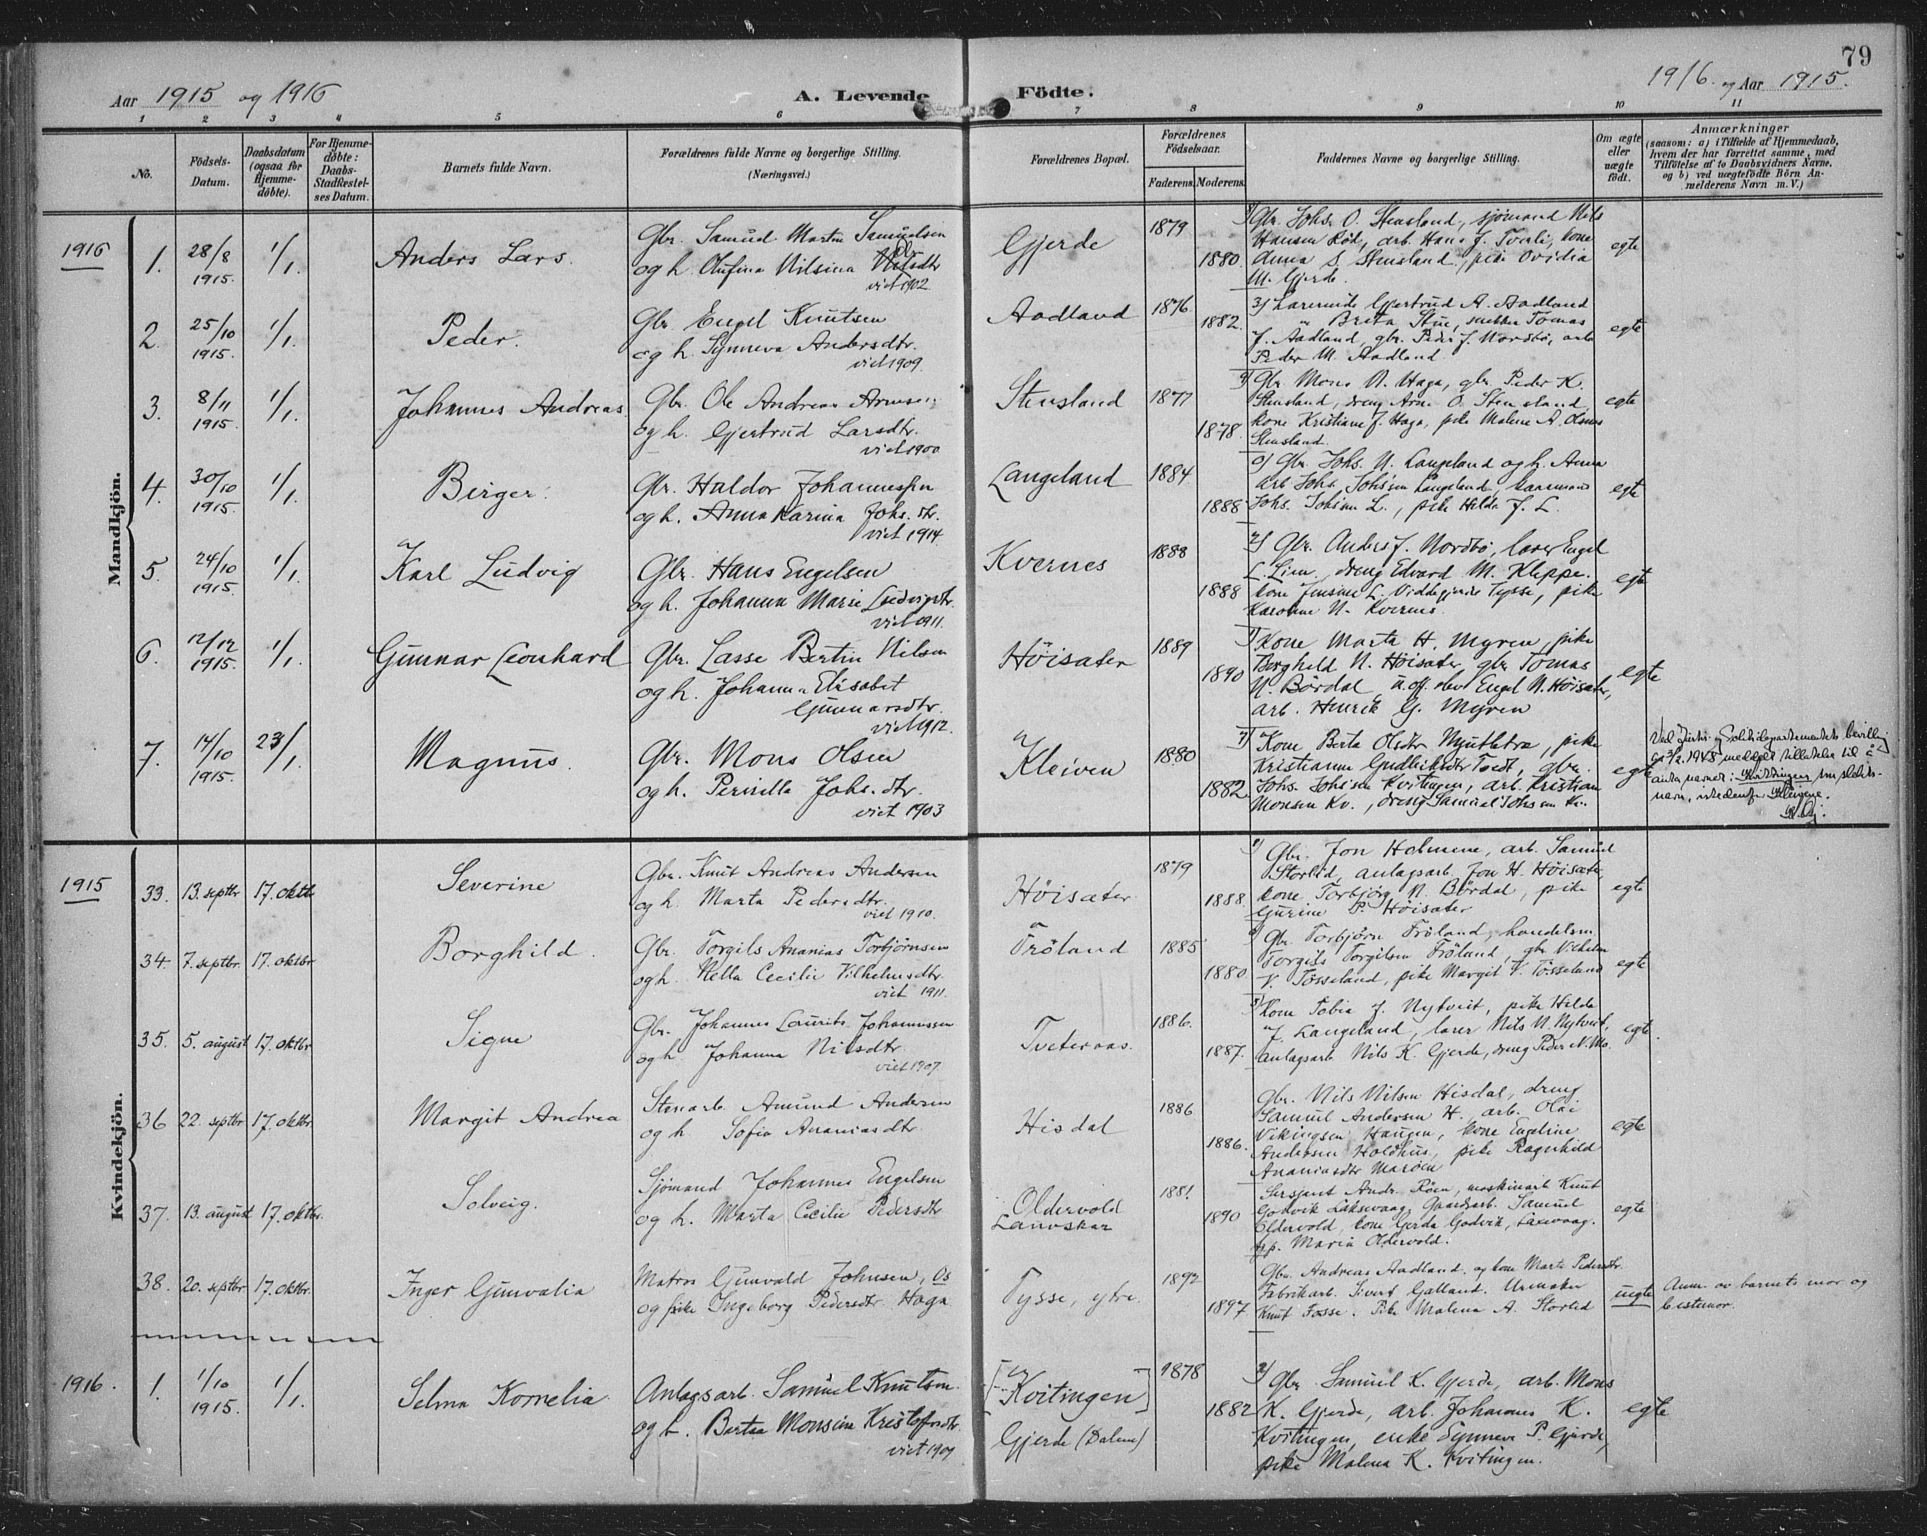 79
Aar 1915 og 1916 A. Levende Födte. 1916. og Aar 1915.
1 2 3 4 5 6 7 8 9 10 11
No. Födsels-Datum. Daabsdatum (ogsaa for Hjemme-döbte). For Hjemme-döbte: Daabs-Stadfæstel-ses Datum. Barnets fulde Navn. Forældrenes fulde Navne og borgerlige Stilling. (Næringsvei.) Forældrenes Bopæl. Forældrenes Födselsaar. Faderens. Moderens. Faddernes Navne og borgerlige Stilling. Om ægte eller uægte födt. Anmærkninger (saasom: a) i Tilfælde af Hjemmedaab, hvem der har forrettet samme, med Tilföielse af to Daabsvidners Navne, og b) ved uægtefödte Börn An-melderens Navn m. V.)
Mandkjön.
1916
1. 28/8 1915. 1/1. Anders Lars. Gbr. Samuel Martin Samuelsen
og h. Olufina Nilsina
viet 1902.
Gjerde 1879 1880.
Gbr. Johs. O. Stensland, sjømand Nils
Hansen Röd, arb. Hans J. Tverli, kone
Anna S. Stensland, pike Ovidia
M. Gjerde.
egte
2. 25/10 1915. 1/1. Peder. Gbr. Engel Knutsen
og h. Synneva Andersdtr.
viet 1909.
Aadland 1876 1882.
Gjertrud A. Aadland
Brita Tomas
J. Aadland, gbr. Peder J. Nordbö, arb
Peder M. Aadland
egte
3. 8/11 1915. 1/1. Johannes Andreas Gbr. Ole Andreas
og h. Gjertrud Larsdtr.
viet 1900
Stensland 1877 1878.
Gbr. Mons N. Haga, gbr. Peder K.
Stensland, dreng Arne O. Stensland
kone Kristiane J. Haga, pike Malene A. Olsnes
Stensland.
egte
4. 30/10 1915. 1/1. Birger. Gbr. Haldor Johannessen
og h. Anna Karina Johs. dtr.
viet 1914
Langeland 1884. 1888
Gbr. Johs. N. Langeland og h. Anna
arb. Johs. Johsen Langeland,
Johs. Johsen L., pike Hilda J. L.
egte
5. 24/10 1915. 1/1. Karl Ludvig Gbr. Hans Engelsen
og h. Johanna Marie Ludvigdtr.
viet 1911.
Kvernes 1888 1888
Gbr. Anders J. Nordbö, lærer Engel
L. Lien, dreng Edvard M. Kleppe.
kone Jensine L. Tysse, pike
Karoline N. Kvernes.
egte
6. 12/12 1915. 1/1. Gunnar Leonhard Gbr. Lasse Bertin Nilsen
og h. Johanna Elisabet
Gunnarsdtr.
viet 1912.
Höisæter 1889 1890
Kone Marta H. Myren, pike
Borghild N. Höisæter, gbr. Tomas
N. Bördal, u.off. elev Engel N. Höisæter,
arb. Henrik G. Myren
egte
7. 14/10 1915. 23/1. Magnus. Gbr. Mons Olsen
og h. Pernilla Johs. dtr.
viet 1903
Kleiven 1880 1882.
Kone Berta Olsdtr. Myntetræ, pike
Kristianne Tvedt, gbr.
Johs. Johsen Kvitingen, arb. Kristian
Monsen Kv., dreng Samuel Johsen Kv.
egte
Ved Justis- og Politidepartementets bevilling
1945 meddelt tillatelse til å
anta navnet: Kvittingen som slekts-
navn, istedenf. Kleivene.
Kvindekjön.
1915
33. 13. septbr 17. oktbr Severine Gbr. Knut Andreas Andersen
og h. Marta Pedersdtr.
viet 1910.
Höisæter. 1879 1888.
Gbr. Jon Holmene, arb. Samuel
Storlid, anlagsarb. Jon H. Höisæter,
kone Torbjørg N. Bördal, pike
Gurine P. Höisæter
egte
34. 7. septbr. 17. oktbr Borghild. Gbr. Torgils Ananias Torbjørnsen
og h. Mella Cecilie Vilhelmsdtr.
viet 1911.
Fröland 1885 1880
Gbr. Torbjörn Fröland, handelsm.
Torgils Torgilsen Fröland, gbr. Vilhelm
V. Tösseland, pike Margit V. Tösseland
egte
35. 5. august 17. oktbr. Signe Gbr. Johannes Laurits Johannessen
og h. Johanna Nilsdtr.
viet 1907.
Tveteraas. 1886. 1887.
Kone Tobia J. Nytveit, pike Hilda
J. Langeland, lærer Nils N. Nytveit,
anlagsarb. Nils K. Gjerde, dreng Peder N. Mo.
egte.
36 22. septbr 17. oktbr. Margit Andrea Stenarb. Amund Andersen
og h Sofia Ananiasdtr.
Hisdal 1886 1886.
Gbr. Nils Nilsen Hisdal, dreng
Samuel Andersen H. arb. Olai
Vikingsen Haugen, kone Engeline
Andersen Holdhus, pike Ragnhild
Ananiasdtr Maröen
egte
37. 13. august 17. oktbr. Solveig. Sjömand Johannes Engelsen
og h. Marta Cecilie Pedersdtr.
Oldervold
Lanvskar 1881. 1890
Sersjant Andr. Röen, maskinarb. Knut
Godvik Laksevaag, Gaardsarb. Samuel
Oldervold, kone Gerda Godvik, Laxevaag.
Hp. Maria Oldervold.
egte
38. 20. septbr 17. oktbr. Inger Gunvalia Matros Gunvald Johnsen, Os
og pike Ingeborg Pedersdtr. Haga
Tysse, ytre. 1892 1897
Gbr. Andreas Aadland og kone Marta Pedersdtr.
Fabrikarb. Sivert Gatland. Urmaker
Knut Fosse. Pike Malena A. Storlid
uegte
Anm. av barnets mor og
bestemor.
1916. 1. 1/10 1915. 1/1. Selma Kornelia. Anlagsarb. Samuel Knutsen
og h. Bertaa Monsine Kristoffersdtr.
viet 1907
[Kvitingen]
Gjerde (Dalene) 1878 1882
Gbr. Samuel K. Gjerde, arb. Mons
K. Gjerde, arb. Johannes K.
Kvitingen, enke Synneve P. Gjerde,
pike Malena K. Kvitingen.
egte